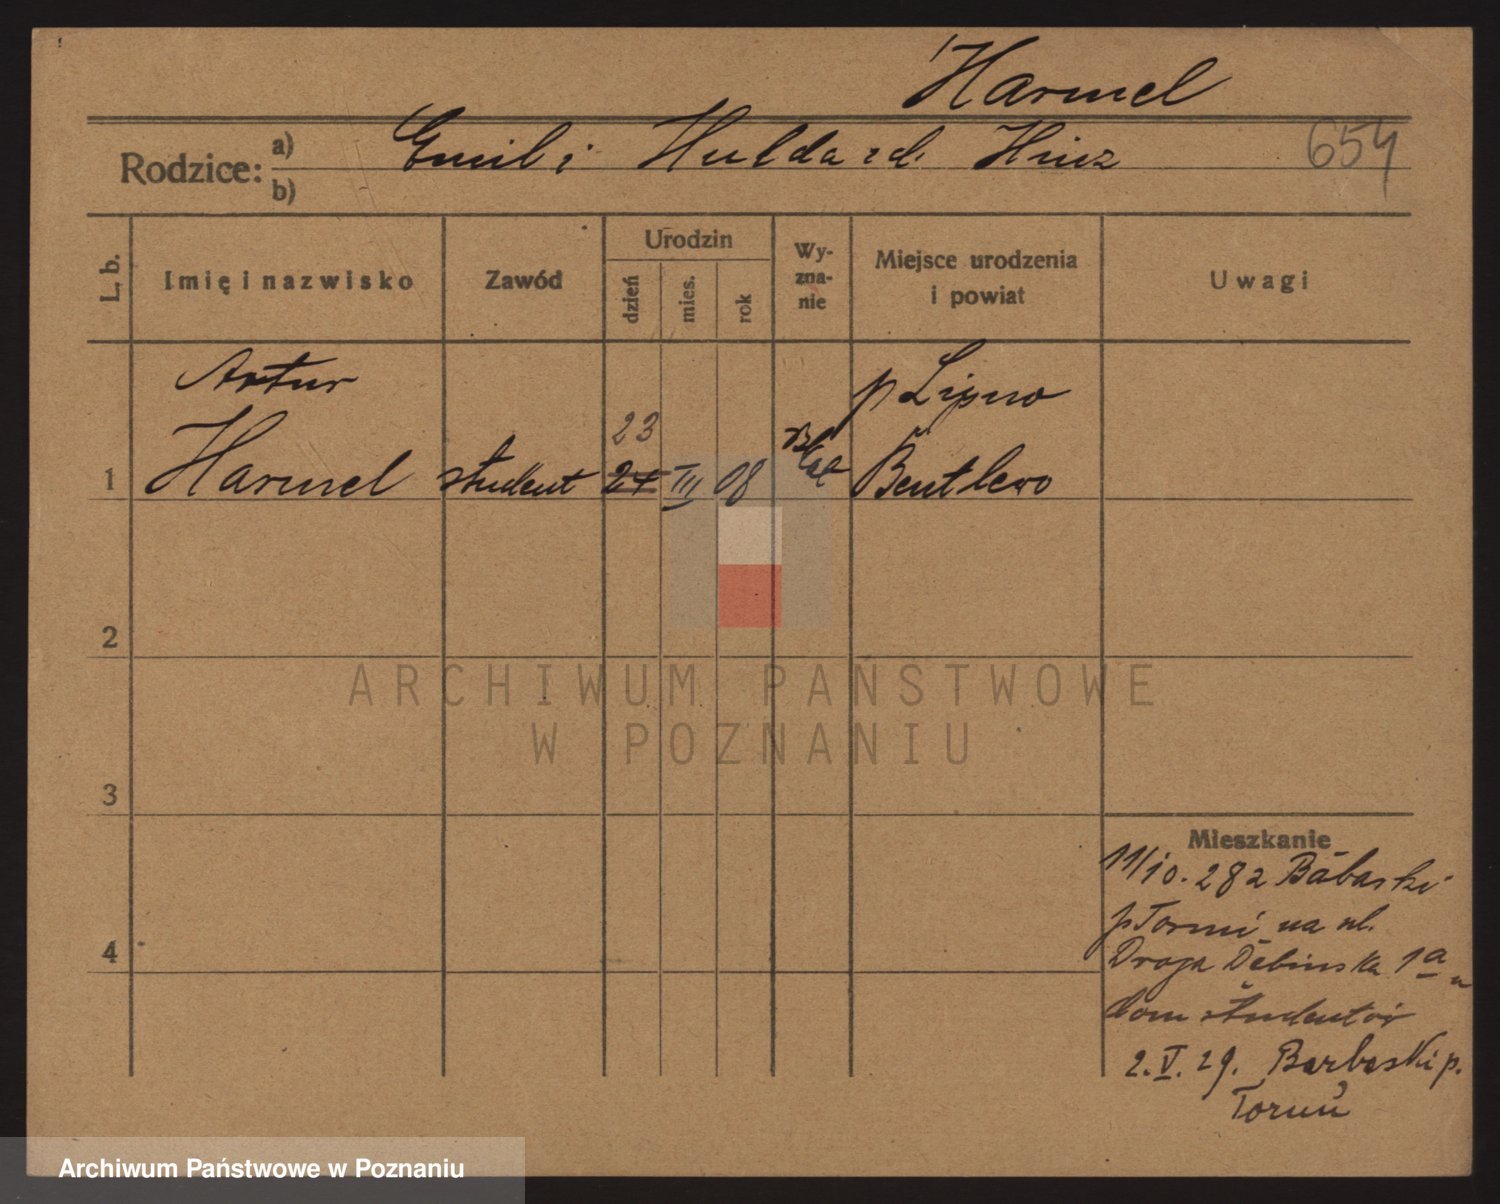 Harmel
Rodzice: a) Emil i Hulda zd. Hinz
b)
654
L. b.
Imię i nazwisko
Zawód
Urodzin
dzień
mies.
rok
Wy-
zna-
nie
Miejsce urodzenia
i powiat
Uwagi
Artur
p Lipno
23
1 Harmel student 24 III 08 Bentlewo
2
3
4
Mieszkanie
11/10. 282 Babaski
p Toruń na ul.
Droga Dębinska 1a
dom studentów
2. V. 29. Barbaski p.
Toruń
ARCHIWUM PAŃSTWOWE
W POZNANIU
Archiwum Państwowe w Poznaniu